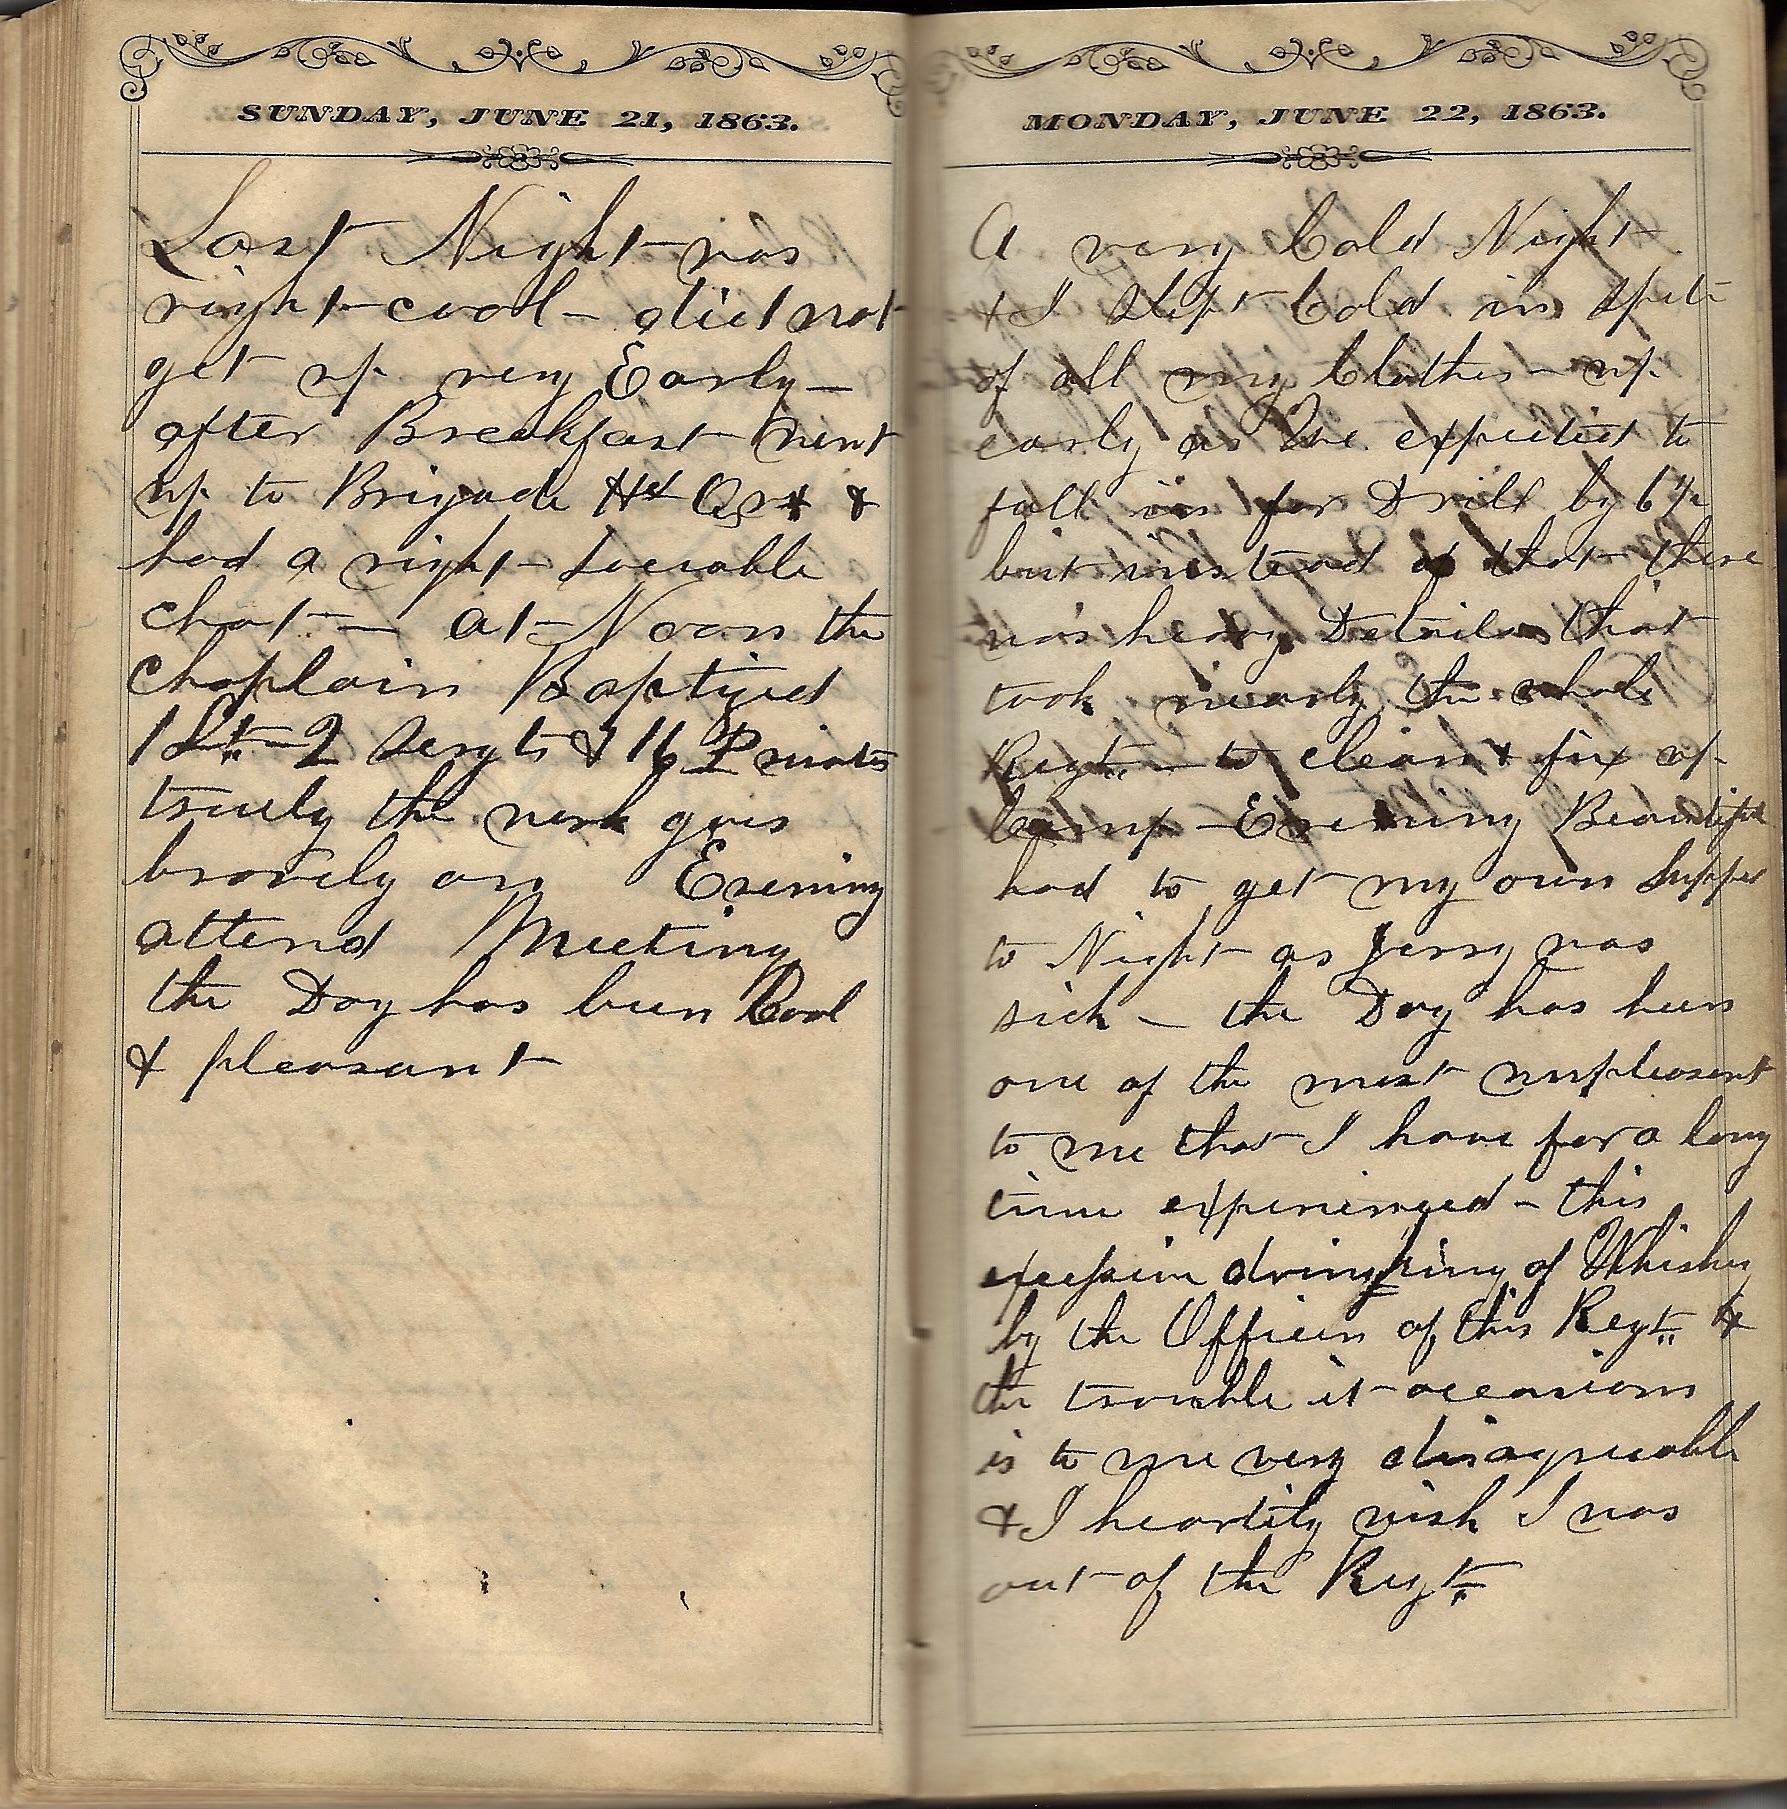 SUNDAY, JUNE 21, 1863.
Last Night was
right cool – did not
get up very Early –
after Breakfast went
up to Brigade Hd Qrs &
had a right sociable
chat – at Noon the
Chaplain Baptized
1 Lt. 2 Sergts & 16 Privates
truly the work goes
bravely on Evening
attend Meeting
the Day has been Cool
& pleasant
MONDAY, JUNE 22, 1863.
A very Cold Night
& I slept Cold in spite
of all my Clothes – up
early as We expected to
fall in for Drill by 6½
but instead of that there
was heavy Details that
took nearly the whole
Regt. – to clean & fix up
Camp – Evening Beautiful
had to get my own Supper
to Night as Jerry was
sick – the Day has been
one of the most unpleasent
to me that I have for a long
time experienced – this
excessive drinking of Whiskey
by the Officers of this Regt. &
the trouble it occasions
is to me very disagreeable
& I heartily wish I was
out of the Regt.